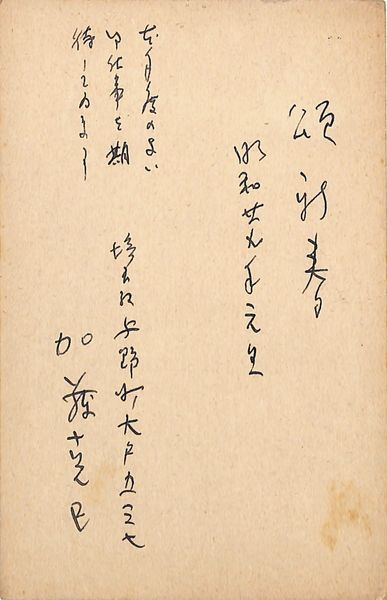 頌新春
昭和廿九年元旦
本年度のよい
御仕事を期
待してゐます
埼玉県与野町大戸五三七
加藤克巳